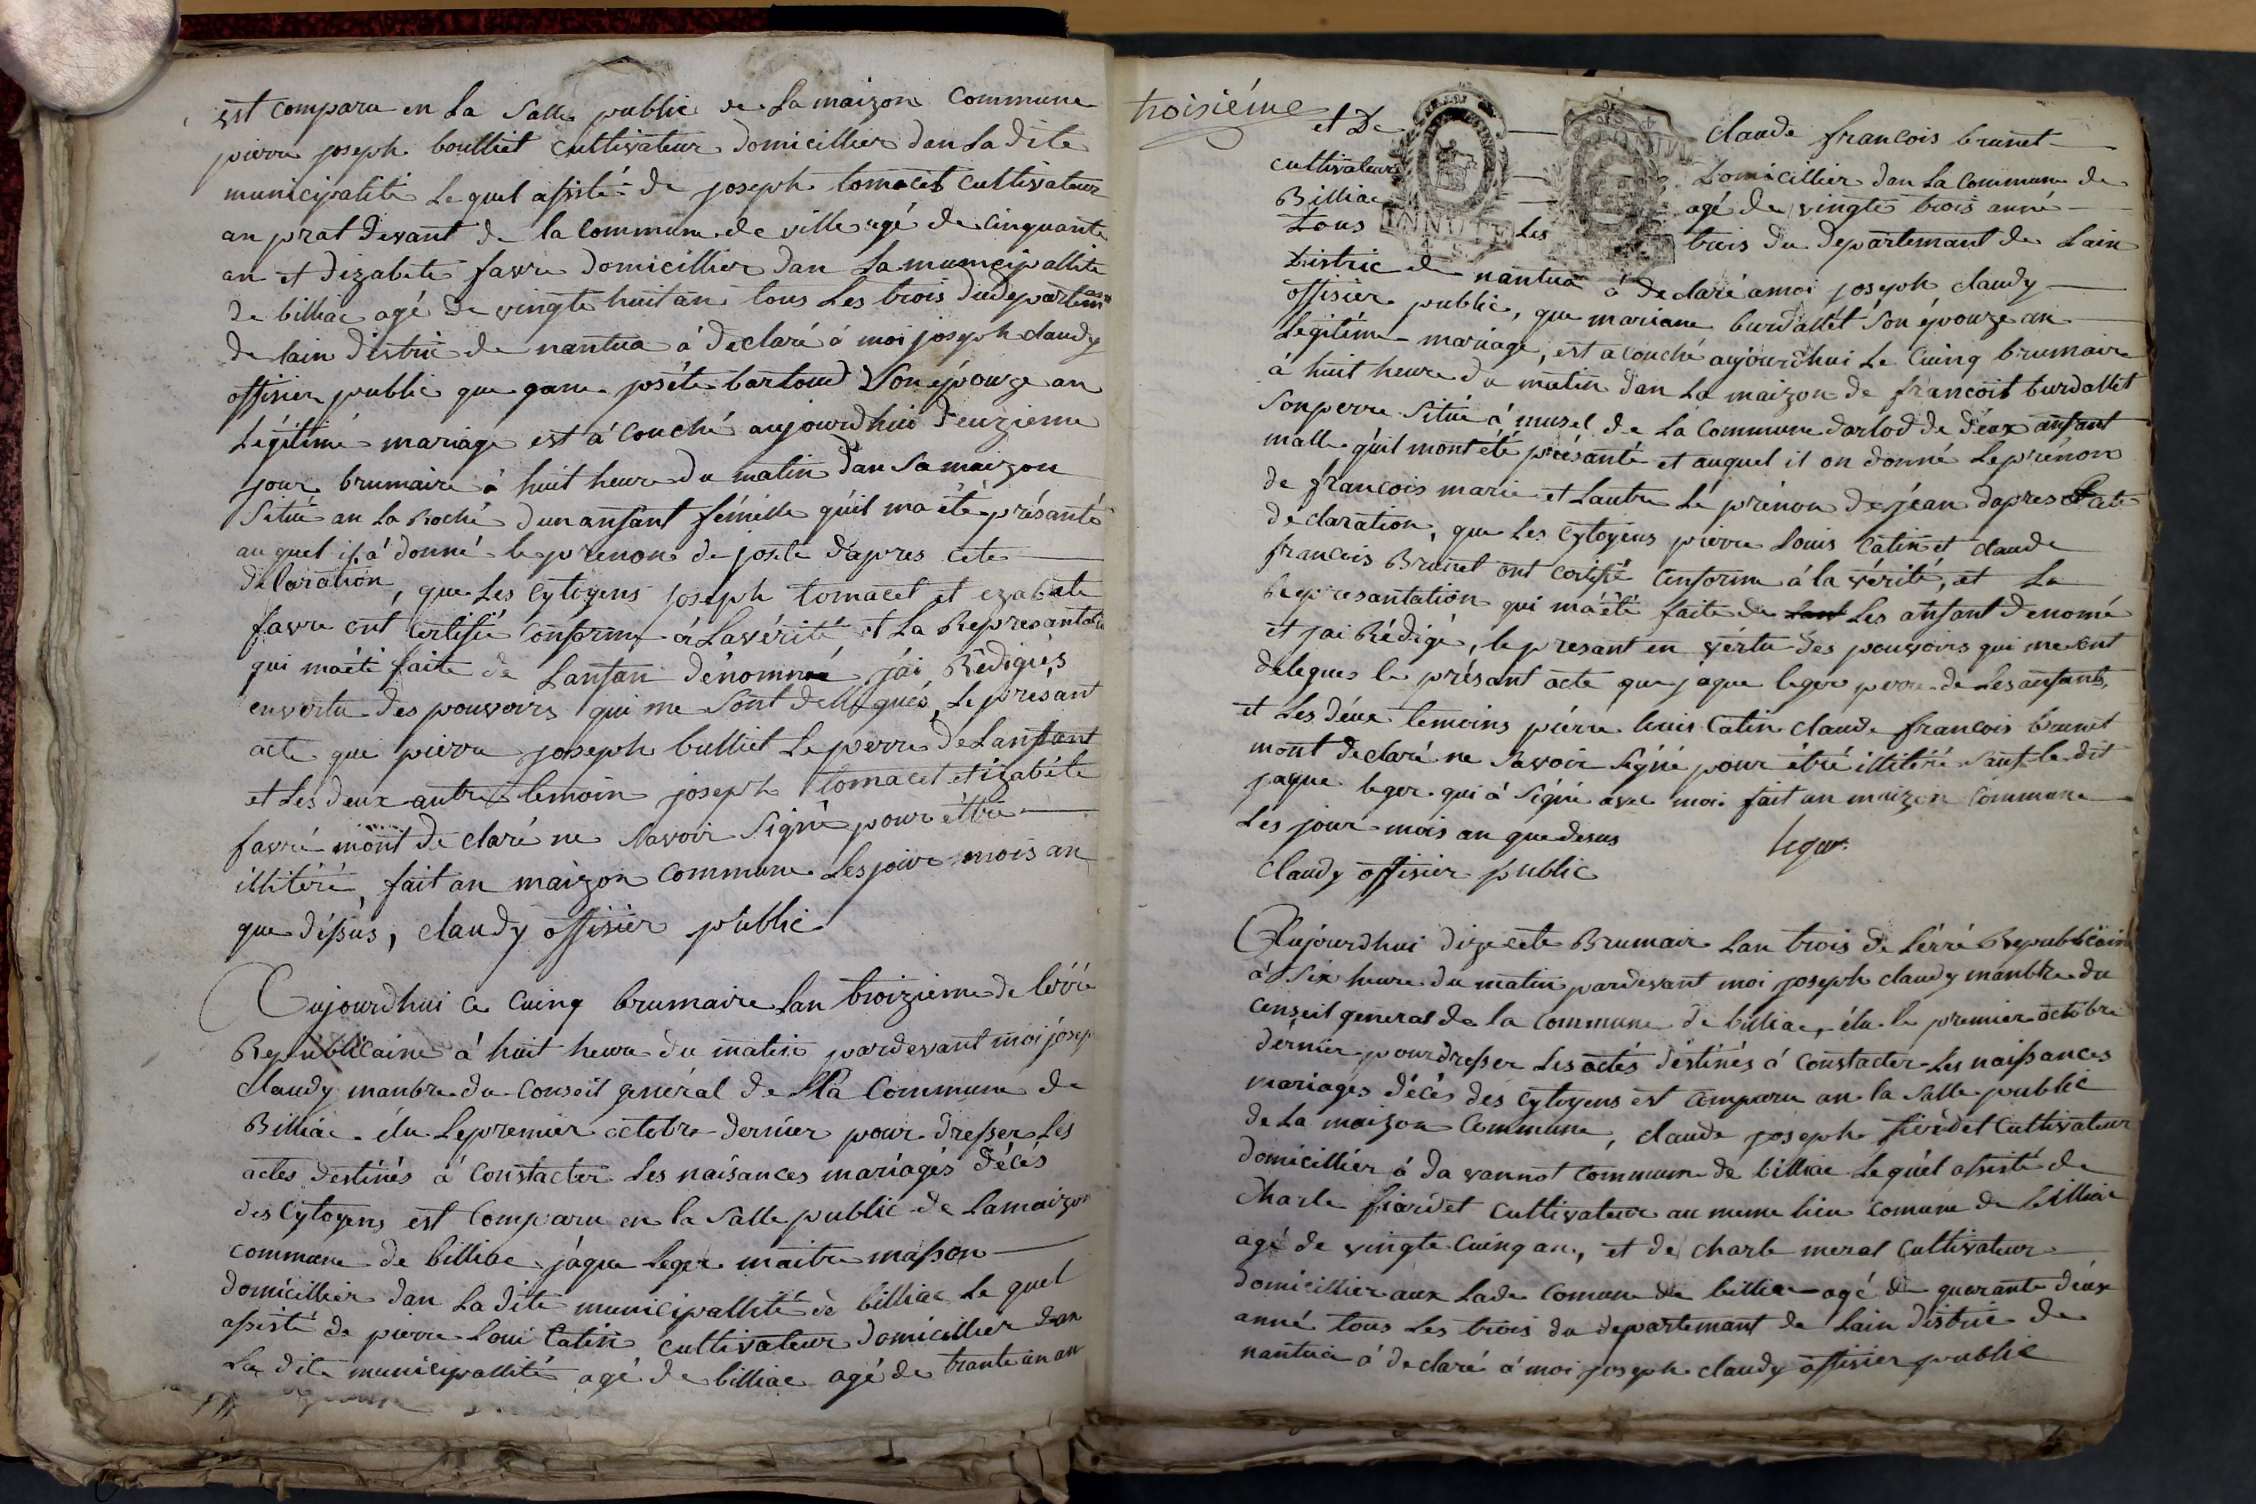 est comparu en La Salle public de La maizon Commune
pierre joseph boulliet Cultivateur Domicillier dan La dite
municipalité Le quel assisté de joseph tomacet Cultivateur
an prat devant de la Commune de ville agé de Cinquante
an et dizabete favre Domicillier dan La municipallite
de billiac agé de vingte huit an tous Les trois du departem
de lain distric de nantua à declaré à moi joseph claudy
offisier public que janne poséte bartoud Son épouze an
Légitime mariage est à Couché aujourdhui deuzieme
jour brumaire à huit heure du matin dan Sa maizon
Situé an La Roche dun anfant fémélle quil ma été présanté
auquel il à donné le prenon de joséte dapres cete
déclaration, que Les Cytoyens joseph tomacet et ezabete
favre ont Certifié Conforme à La vérité et La Representation
qui ma été faite de Lanfan dénommé jái Rédigués
en vertu des pouvoirs qui me Sont dellégués, Le présant
acte que pierre joseph bulliet Le perre de Lanfant
et Les deux autre temoin joseph tomacet et izabéte
favré mont de claré ne Savoir Signé pour être
illitéré, fait an maizon Commune Les jour mois an
que déssus, claudy offisier public
Aujourdhui ce Cuinq brumaire Lan troizieme de lérré
Republicaine à huit heure du matin pardevant moi josep
Claudy manbre du Conseil genéral de La Commune de
Billiac élu Le premier octobre dernier pour dresser Les
actes destinés à Constacter Les naisances mariagés décés
des Cytoyens est Comparu en la Salle public de La maizon
commune de billiac jáque Leger maitre masson
domicillier dan La dite municipallité de billiac Le quel
assisté de pierre Loui Catin cultivateur domicillier dan
La dite municipallité agé de billiac agé de trante un an
troisiéme
et De claude francois brunet
cultivateur Domicillier dan La Commune de
Billiac agé de vingte trois anné
tous Les trois du departemant de Lain
District de nantua à declaré a moi joseph claudy
offisier public, que mariane burdallét Son épouze an
Legitime mariage, est a couché aujourdhui Le Cuinq brumaire
à huit heure du matin dan La maizon de francoit burdallet
Son perre Situé á musel de La Commune darlod de déux anfant
malle quil mont été présanté et auquel il on donné Le prénon
de francois marie et Lautre Le prénon de jéan dapres Cete
declaration, que Les Cytoyens pierre Louis Catin et claude
francois Brunet ont certifié Conforme á la vérité, et La
Represantation qui má été faite de Les anfant dénomé
et jai Rédigé, le presant en vértu des pouvoirs qui me sont
delegues le présant acte que jaque leger perre de Les anfants,
et Les déux temoins piérre Louis Catin claude francois brunet
mont declaré ne Savoir Signé pour étré illitéré Sauf le dit
jaque leger qui à Signé avec moi fait an maizon Commune
Les jour mois an que desus leger
Claudy offisier public
Aujourdhui dizecete Brumair Lan trois de Lérré Republicain
à Six heure du matin pardevant moi joseph claudy manbre du
Conseil general de la Commune de billiac, élu le premier octobre
dernier pour dresser Les actés déstinés á Constacter Les naissances
mariages décés des Cytoyens est Comparu an la Salle public
de La maizon Commune, claude joseph fiérdet Cultivateur
domicillier à da vannot Commune de billiac Le quél assisté de
Charle fiardet Cultivateur au meme lieu Comune de billiac
agé de vingte Cuinq an, et de Charle meral Cultivateur
domicillier aux Lade Comune de billiac agé de quarante déux
anné tous Les trois du departemant de Lain distric de
nantua à déclaré à moi joseph claudy offisier public